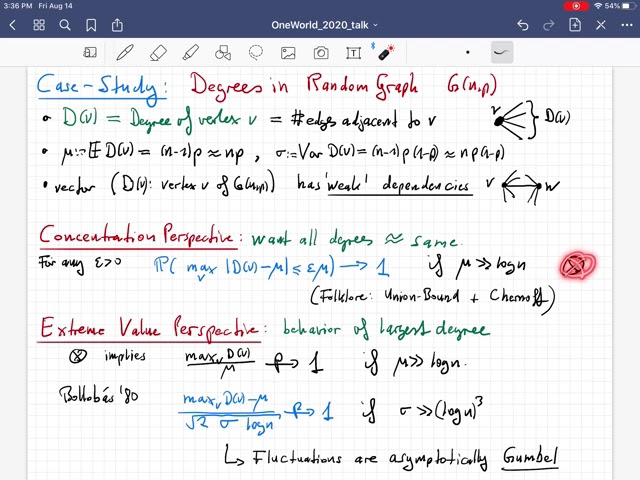 3:36 PM Fri Aug 14
54%
OneWorld_2020_talk
Case-Study: Degrees in Random Graph G(n,p)
• D(v) = Degree of vertex v = #edges adjacent to v
v } D(v)
• μ := E D(v) = (n-1)p ≈ np , σ := Var D(v) = (n-1)p(1-p) ≈ np(1-p)
• vector (D(v): vertex v of G(n,p)) has 'weak' dependencies
v w
Concentration Perspective: want all degrees ≈ same.
For any ε>0 P( max_v |D(v)-μ| ≤ εμ) → 1 if μ ≫ log n ⊗
(Folklore: Union-Bound + Chernoff)
Extreme Value Perspective: behavior of largest degree
⊗ implies max_v D(v) / μ →p 1 if μ ≫ log n.
Bollobás '80 max_v D(v) - μ / √2 σ log n →p 1 if σ ≫ (log n)^3
↳ Fluctuations are asymptotically Gumbel